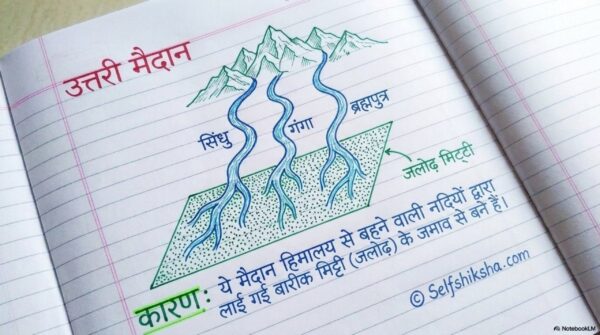 उत्तरी मैदान
सिंधु
गंगा
ब्रह्मपुत्र
जलोढ़ मिट्टी
कारण: ये मैदान हिमालय से बहने वाली नदियों द्वारा
लाई गई बारीक मिट्टी (जलोढ़) के जमाव से बने हैं।
© Selfshiksha.com
NotebookLM